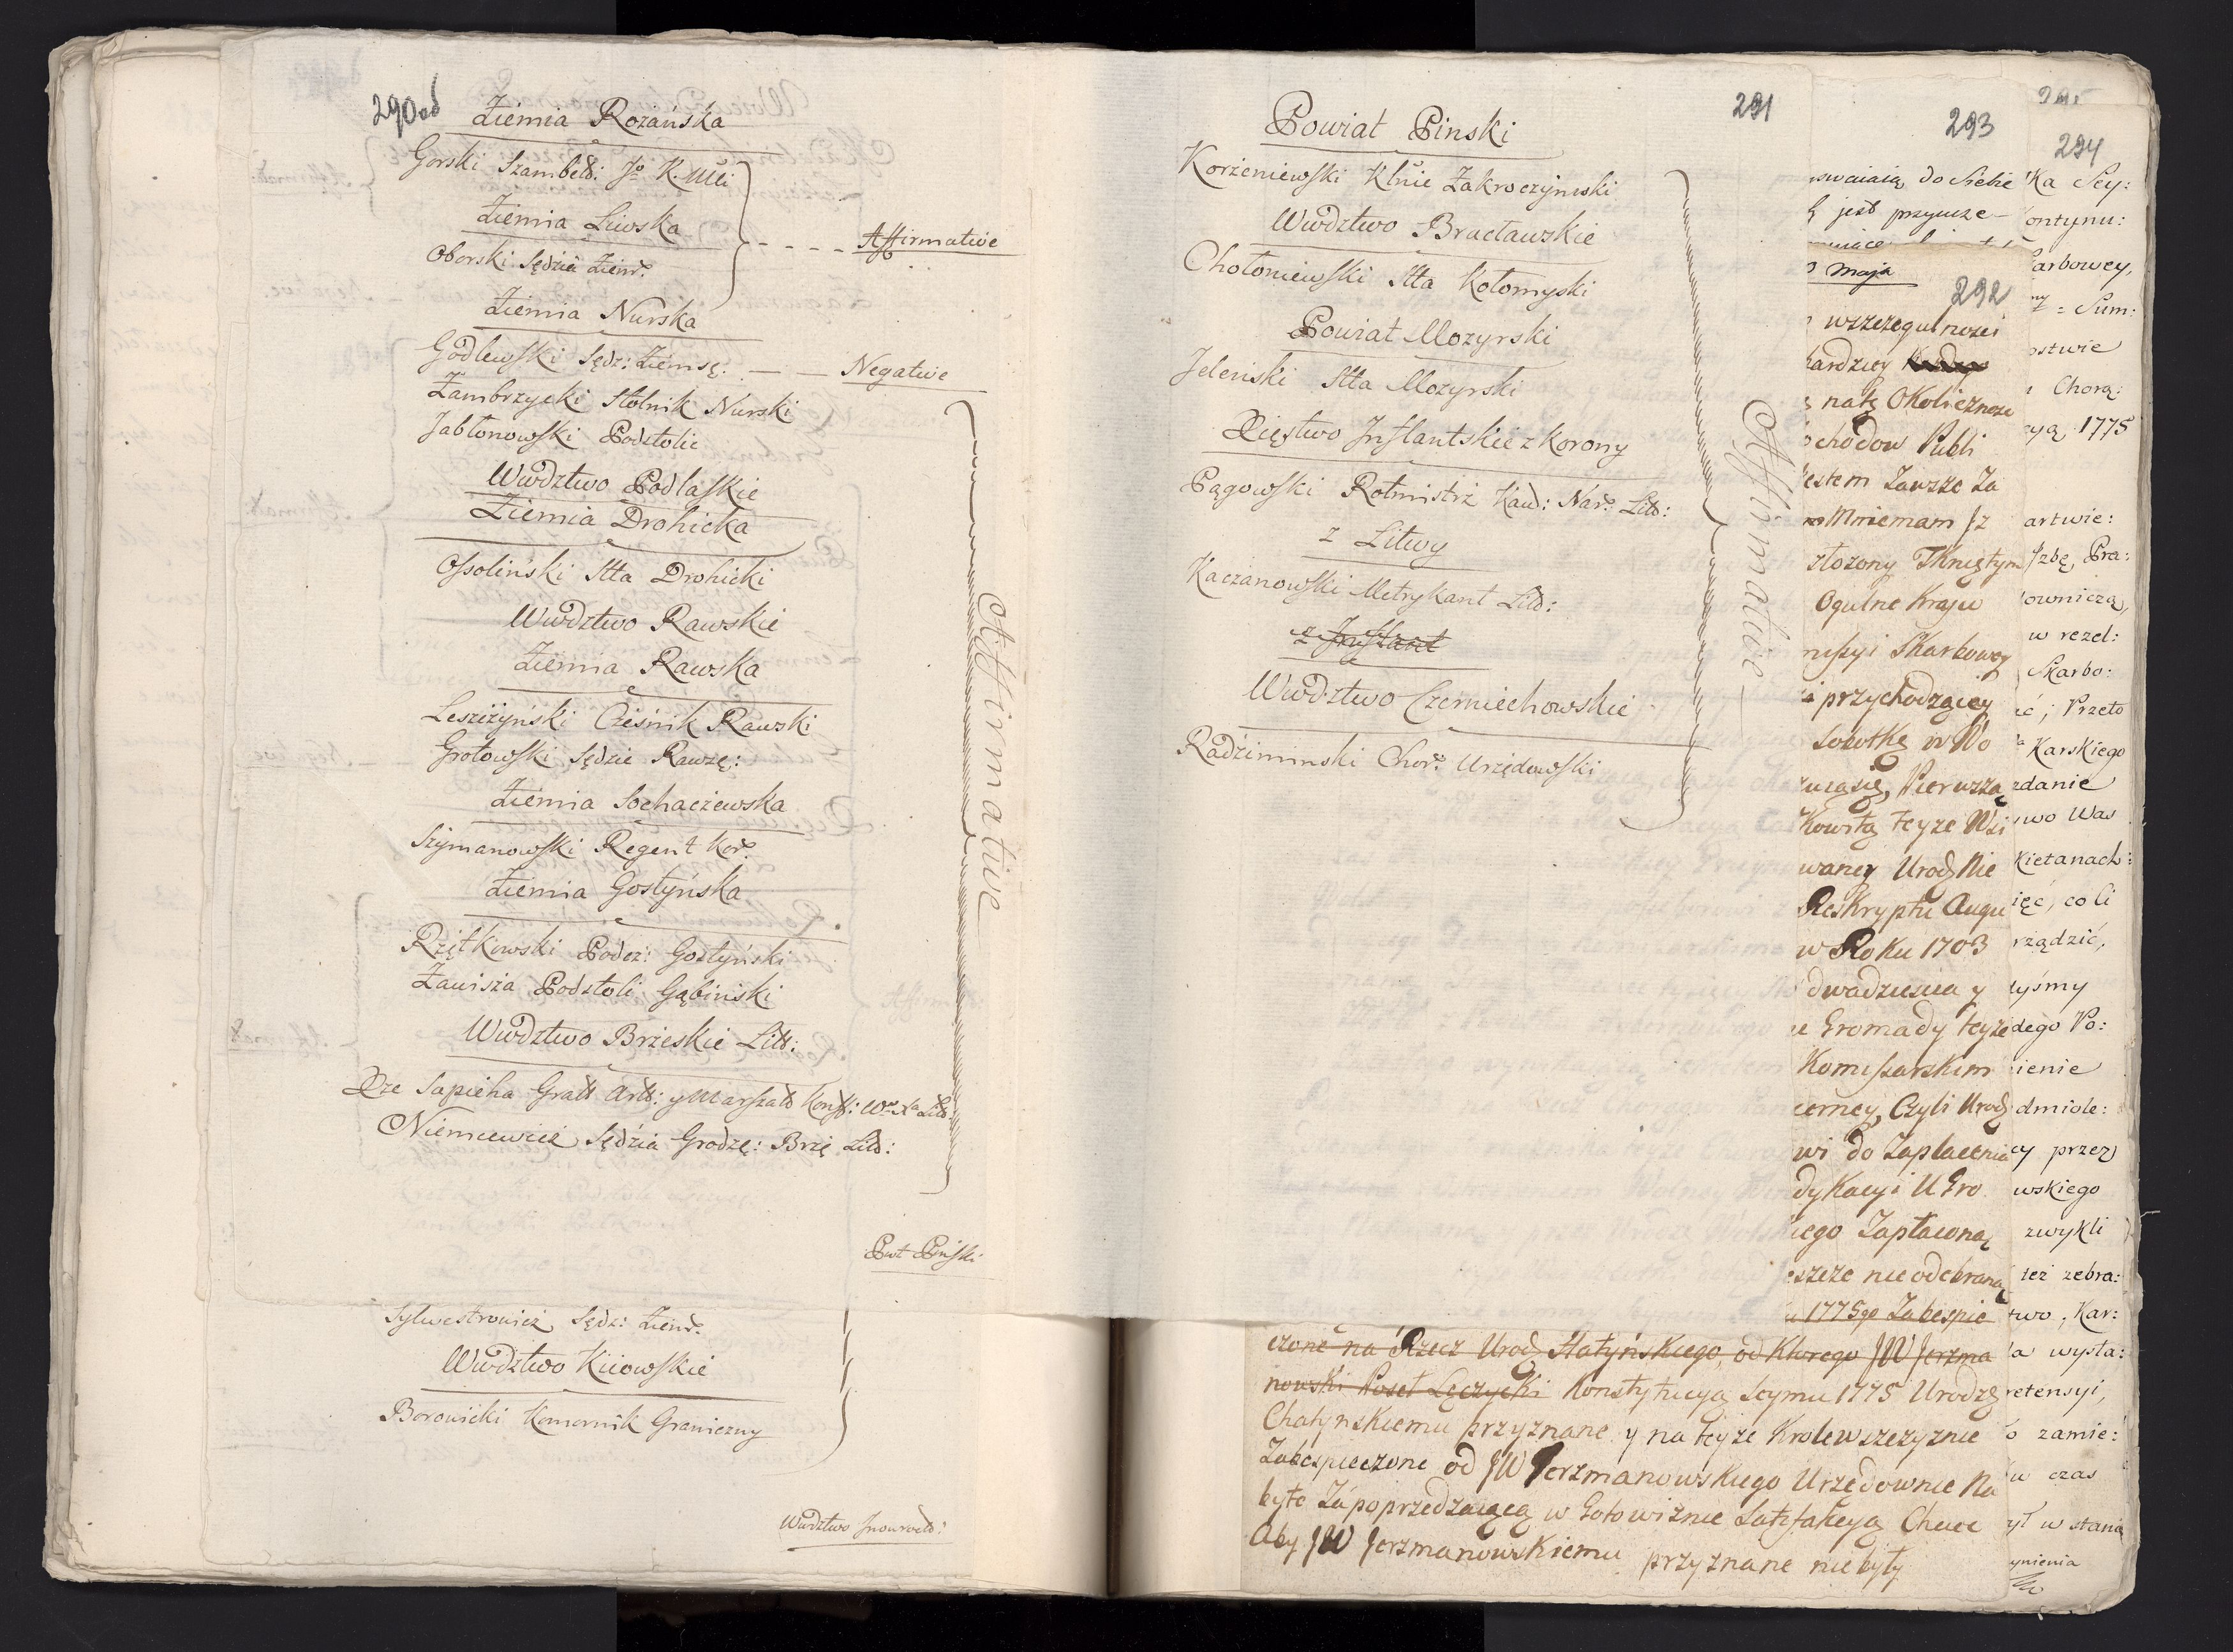 290
Ziemia Rożańska
Gorski Szambell: Jo K. Mci
Ziemia Liwska
Oborski Sędzia Ziem.
Affirmative
Ziemia Nurska
Godlewski Sędz: Ziemsę: — — Negative
Zambrzycki Stolnik Nurski
Jabłonowski Podstolic
Wwdztwo Podlaskie
Ziemia Drohicka
Ossoliński Stta Drohicki
Wwdztwo Rawskie
Ziemia Rawska
Leszczyński Cześnik Rawski
Grotowski Sędzic Rawzę:
Ziemia Sochaczewska
Szymanowski Regent Kor.
Ziemia Gostyńska
Rzętkowski Podcz: Gostyński
Zawisza Podstoli Gąbiński
Wwdztwo Brzeskie Litt:
Xze Sapieha Grałł Artt: y Marszałł Konff: Litt:
Niemcewicz Sędzia Grodzę: Brzę Litt:
Affirmative
Pwt Piński
Sylwestrowicz Sędz: Ziem.
Wwdztwo Kiiowskie
Borowicki Komornik Graniczny
Wwdztwo Inowrocł:
291
Powiat Pinski
Korzeniewski Kltnic Zakroczymski
Wwdztwo Bracławskie
Chołoniewski Stta Kołomyski
Powiat Mozyrski
Jelenski Stta Mozyrski
Xięstwo Inflantskie z Korony
Pągowski Rotmistrz Kaw: Nar. Litt:
z Litwy
Kaczanowski Metrykant Litt:
z Inflant
Wwdztwo Czerniechowskie
Radziminski Chor. Urzędowski
Affirmative
293
do Siebie
jest przyucze-
maja
292
wszczegulnosci
natę Okolicznosc
chodow Publi
estem Zawsze Za
Mniemam Jz
złożony Tknętym
Ogulne Kraju
Skarbowey
przychodzącey
Sowitkę w Wo
Pierwszą
Kowską teyze Wsi
waney Urodz Nie
Reskryptu Augu
w Roku 1703
dwadziescia y
e Gromady teyze
Komissarskim
cerney, Czyli Urodz
wi do Zapłacenia
dykacyi U Gro
iego Zapłaconą
eszcze nie odebraną
1775go Zabespie
czone na Rzecz Urodz Statyńskiego, od Ktorego JW Jerzma
nowski Poseł Lęczycki Konstytucyą Seymu 1775 Urodzę
Chatynskiemu przyznane y na teyze Krolewszczyznie
Zabespieczone od JW Jerzmanowskiego Urzędownie Na
byte Za poprzedzaiącą w Gotowiznie Satysfakcyą Chcee
Aby JW Jerzmanowskiemu przyznane nie były
294
ka Sey:
ontynu:
arbowey,
= Sum:
ostwie
Chorą:
cyą 1775
artwie:
szbę, Pra:
owniczą,
w rezel:
Skarbo:
ić; Przeto
Karskiego
zdanie
wo Was
Kietanach:
ięć, co li
rządzić,
yśmy
dego Po:
ienie
dmiole:
cy przez
wskiego
zwykli
też zebra:
two, Kar:
a wysta:
retensyi,
o zamie:
w czas
ył w stanią
ynienia